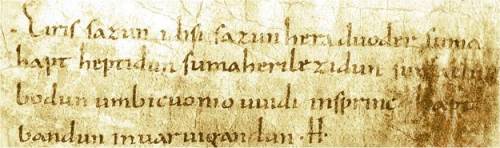 Eiris sazun idisi sazun heraduoder suma
hapt heptidun sumaherilezidun
bodun umbicuonio uuidi insprinc hapt
bandun inuar uigandun · H ·